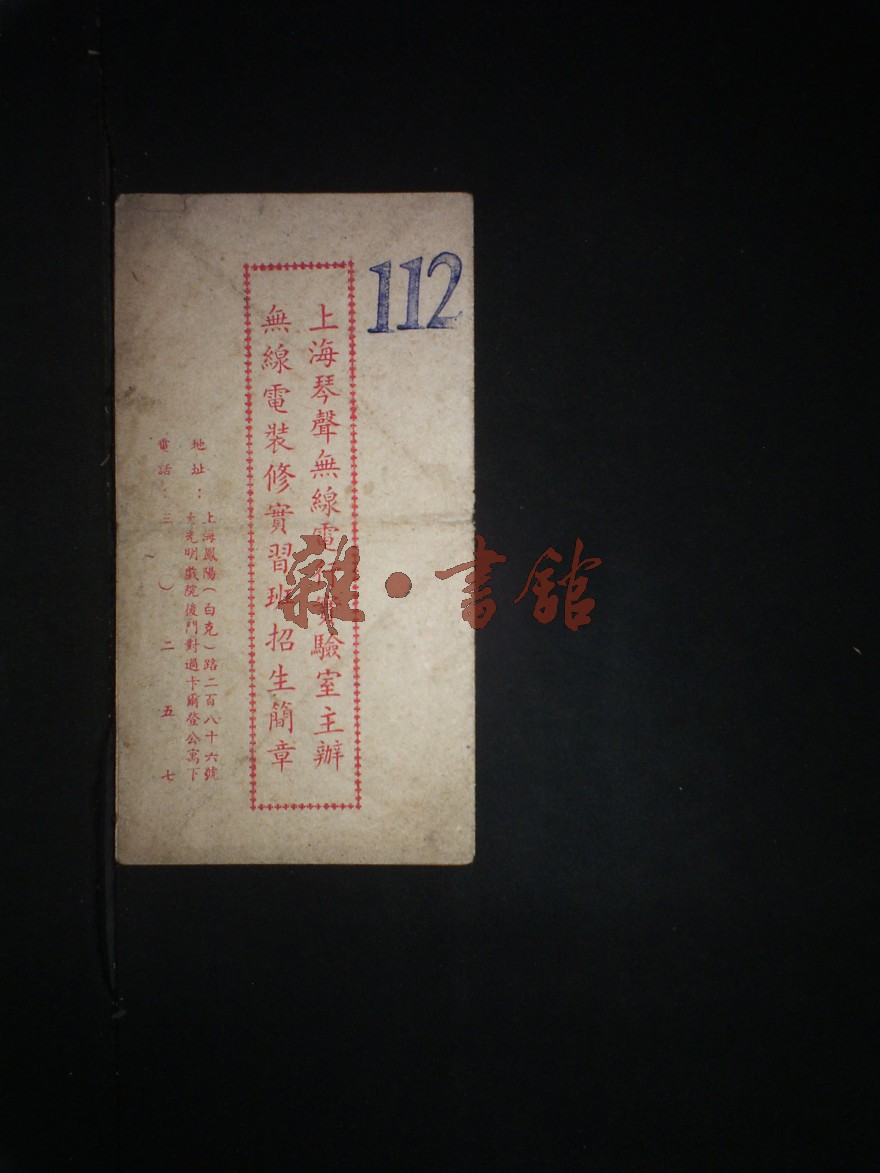 112
上海琴聲無線電行實驗室主辦
無線電裝修實習班招生簡章
地址：上海鳳陽(白克)路二百八十六號
大光明戲院後門對過卡爾登公寓下
電話：三〇二五七
雜·書館